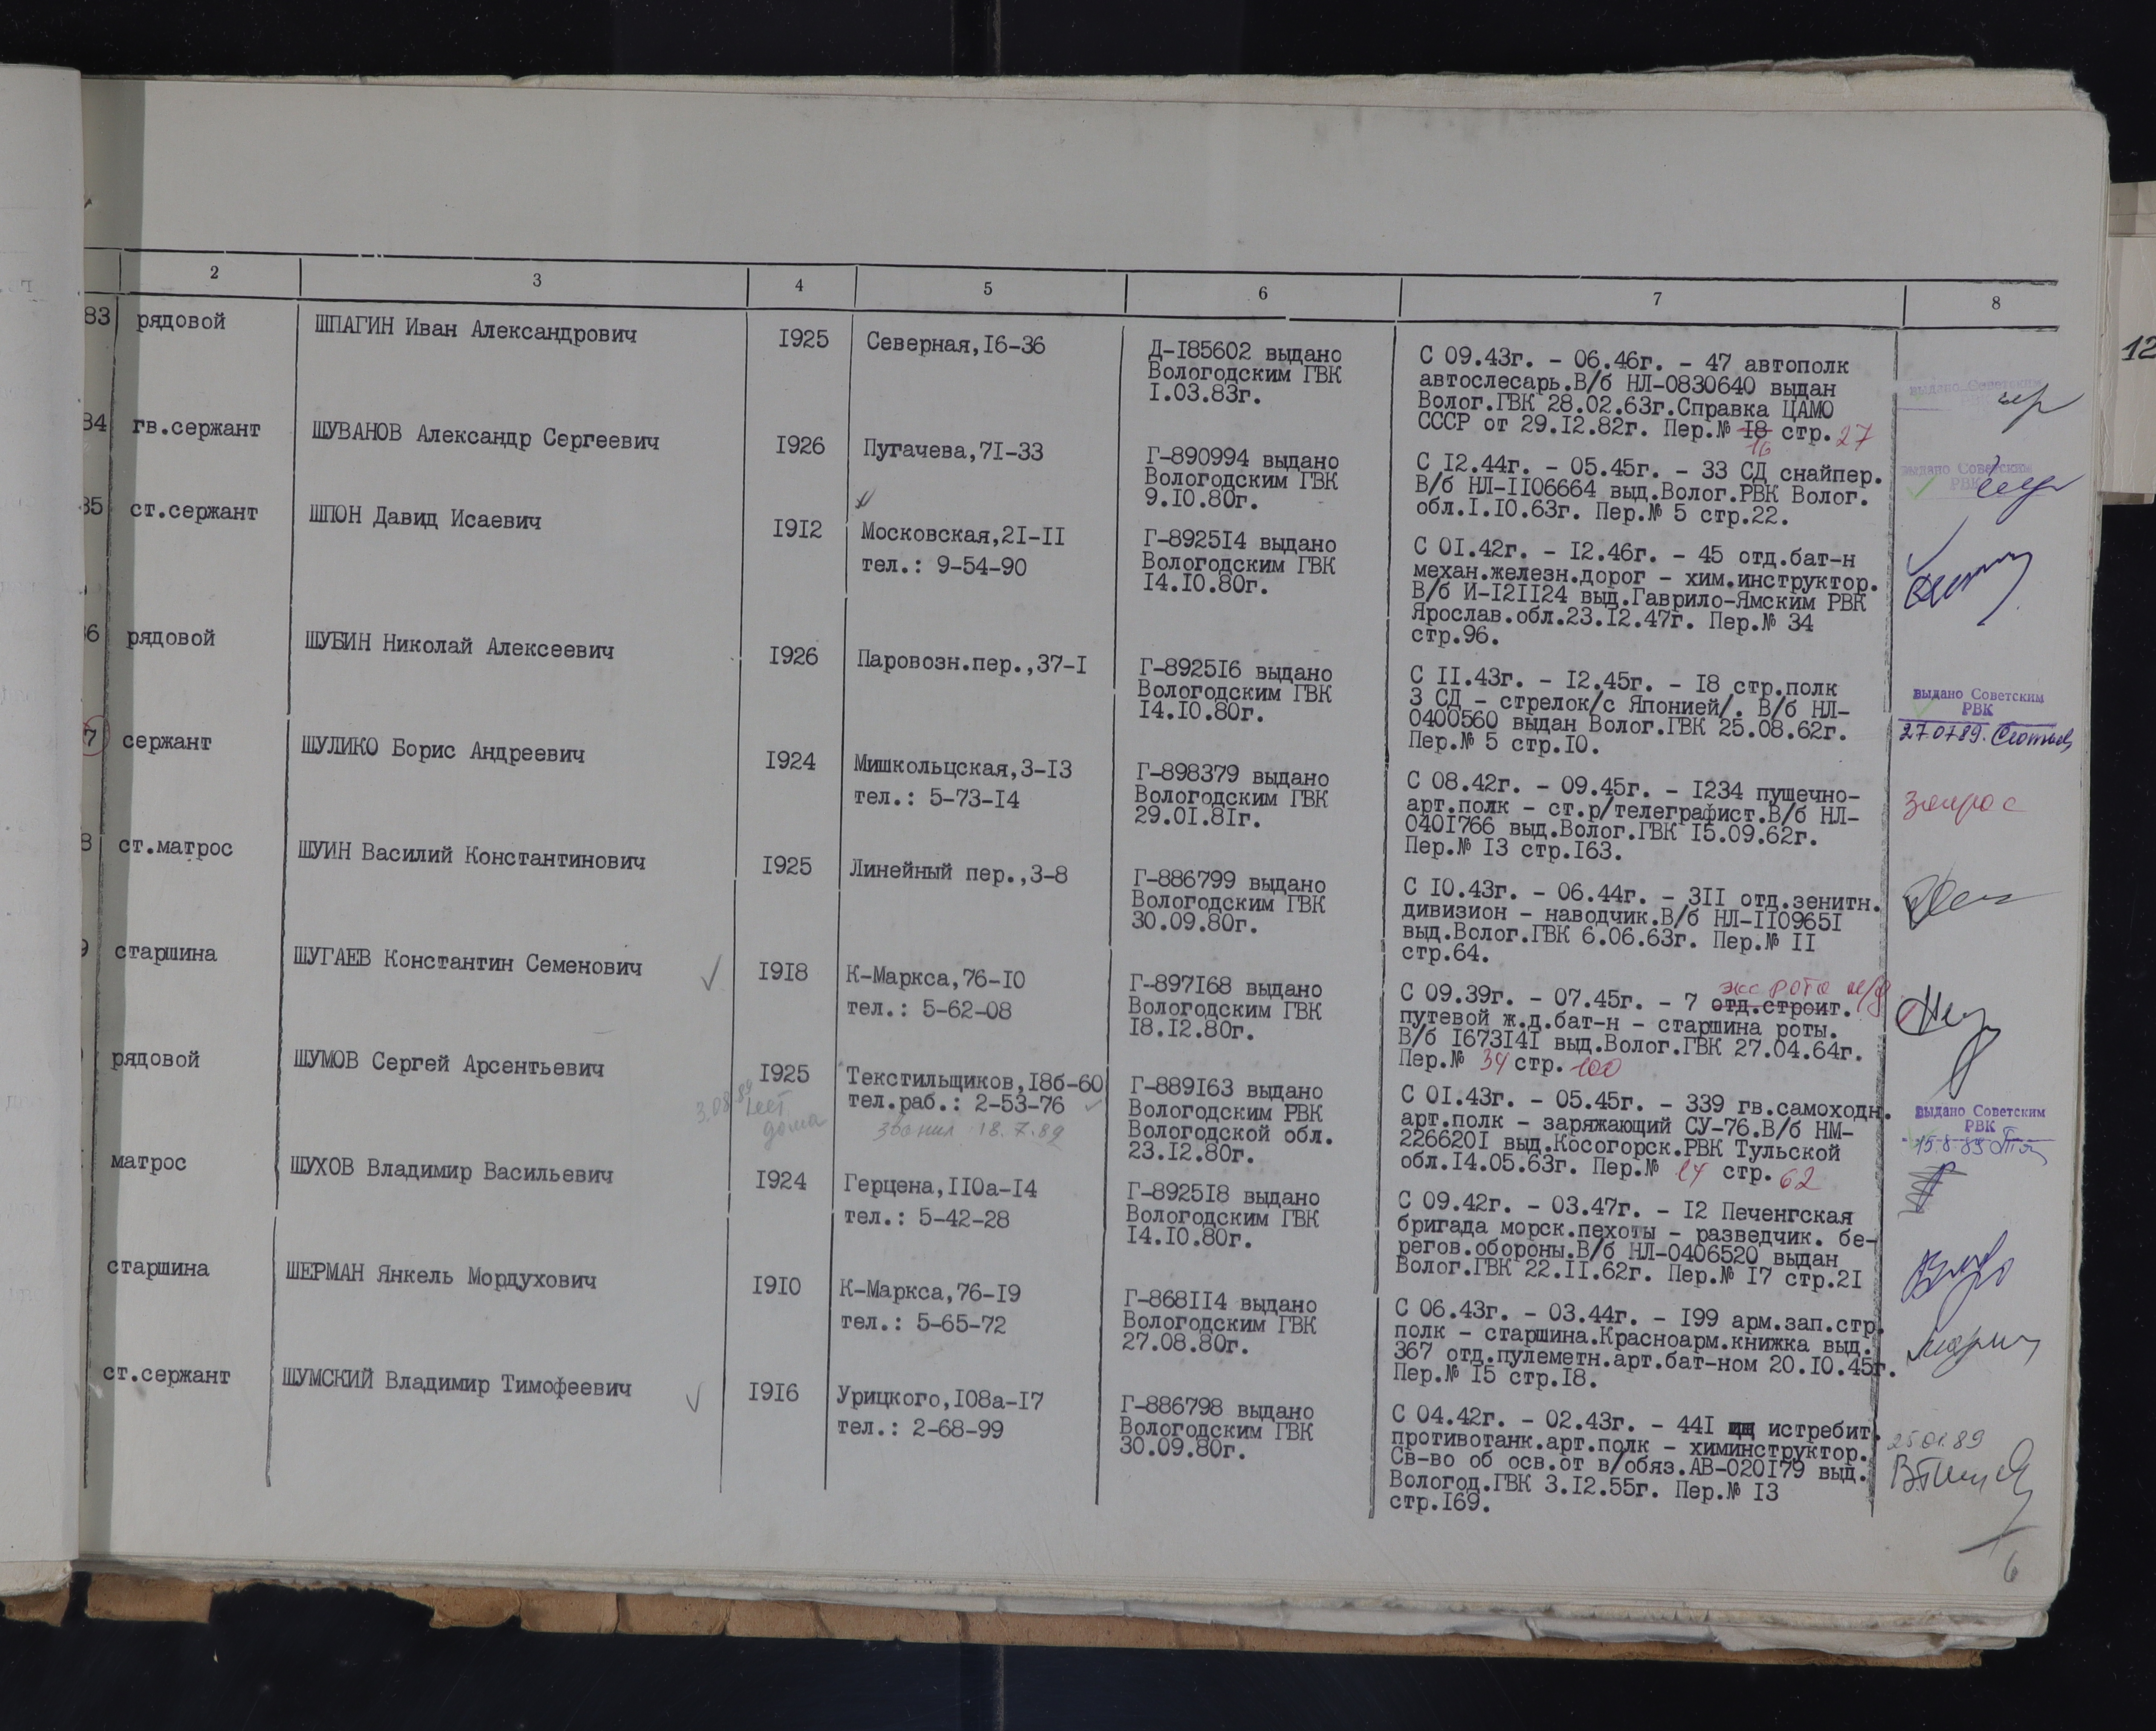 2 3 4 5 6 7 8
12
83 рядовой ШПАГИН Иван Александрович 1925 Северная,16-36
Д-185602 выдано
Вологодским ГВК
1.03.83г.
С 09.43г. - 06.46г. - 47 автополк
автослесарь.В/б НЛ-0830640 выдан
Волог.ГВК 28.02.63г.Справка ЦАМО
СССР от 29.12.82г. Пер.№ 18 стр. 27
16
выдано Советским
РВК
84 гв.сержант ШУВАНОВ Александр Сергеевич 1926 Пугачева,71-33
Г-890994 выдано
Вологодским ГВК
9.10.80г.
С 12.44г. - 05.45г. - 33 СД снайпер.
В/б НЛ-1106664 выд.Волог.РВК Волог.
обл.1.10.63г. Пер.№ 5 стр.22.
выдано Советским
РВК
85 ст.сержант ШПОН Давид Исаевич 1912 Московская,21-11
тел.: 9-54-90
Г-892514 выдано
Вологодским ГВК
14.10.80г.
С 01.42г. - 12.46г. - 45 отд.бат-н
механ.железн.дорог - хим.инструктор.
В/б И-121124 выд.Гаврило-Ямским РВК
Ярослав.обл.23.12.47г. Пер.№ 34
стр.96.
86 рядовой ШУБИН Николай Алексеевич 1926 Паровозн.пер.,37-1
Г-892516 выдано
Вологодским ГВК
14.10.80г.
С 11.43г. - 12.45г. - 18 стр.полк
3 СД - стрелок/с Японией/. В/б НЛ-
0400560 выдан Волог.ГВК 25.08.62г.
Пер.№ 5 стр.10.
выдано Советским
РВК
27.07.89.
7 сержант ШУЛИКО Борис Андреевич 1924 Мишкольцская,3-13
тел.: 5-73-14
Г-898379 выдано
Вологодским ГВК
29.01.81г.
С 08.42г. - 09.45г. - 1234 пушечно-
арт.полк - ст.р/телеграфист.В/б НЛ-
0401766 выд.Волог.ГВК 15.09.62г.
Пер.№ 13 стр.163.
запрос
8 ст.матрос ШУИН Василий Константинович 1925 Линейный пер.,3-8
Г-886799 выдано
Вологодским ГВК
30.09.80г.
С 10.43г. - 06.44г. - 311 отд.зенитн.
дивизион - наводчик.В/б НЛ-1109651
выд.Волог.ГВК 6.06.63г. Пер.№ 11
стр.64.
9 старшина ШУГАЕВ Константин Семенович 1918 К-Маркса,76-10
тел.: 5-62-08
Г-897168 выдано
Вологодским ГВК
18.12.80г.
рота
С 09.39г. - 07.45г. - 7 отд.строит.
путевой ж.д.бат-н - старшина роты.
В/б 1673141 выд.Волог.ГВК 27.04.64г.
Пер.№ 34 стр. 100
рядовой ШУМОВ Сергей Арсентьевич 1925 Текстильщиков,18б-60
тел.раб.: 2-53-76
звонил 18.7.89
3.08.89 нет
дома
Г-889163 выдано
Вологодским РВК
Вологодской обл.
23.12.80г.
С 01.43г. - 05.45г. - 339 гв.самоходн.
арт.полк - заряжающий СУ-76.В/б НМ-
2266201 выд.Косогорск.РВК Тульской
обл.14.05.63г. Пер.№ 14 стр. 62
выдано Советским
РВК
15.8.89
матрос ШУХОВ Владимир Васильевич 1924 Герцена,110а-14
тел.: 5-42-28
Г-892518 выдано
Вологодским ГВК
14.10.80г.
С 09.42г. - 03.47г. - 12 Печенгская
бригада морск.пехоты - разведчик. бе-
регов.обороны.В/б НЛ-0406520 выдан
Волог.ГВК 22.11.62г. Пер.№ 17 стр.21
старшина ШЕРМАН Янкель Мордухович 1910 К-Маркса,76-19
тел.: 5-65-72
Г-868114 выдано
Вологодским ГВК
27.08.80г.
С 06.43г. - 03.44г. - 199 арм.зап.стр.
полк - старшина.Красноарм.книжка выд.
367 отд.пулеметн.арт.бат-ном 20.10.45г.
Пер.№ 15 стр.18.
ст.сержант ШУМСКИЙ Владимир Тимофеевич 1916 Урицкого,108а-17
тел.: 2-68-99
Г-886798 выдано
Вологодским ГВК
30.09.80г.
С 04.42г. - 02.43г. - 441 истребит.
противотанк.арт.полк - химинструктор.
Св-во об осв.от в/обяз.АВ-020179 выд.
Вологод.ГВК 3.12.55г. Пер.№ 13
стр.169.
25.01.89
6